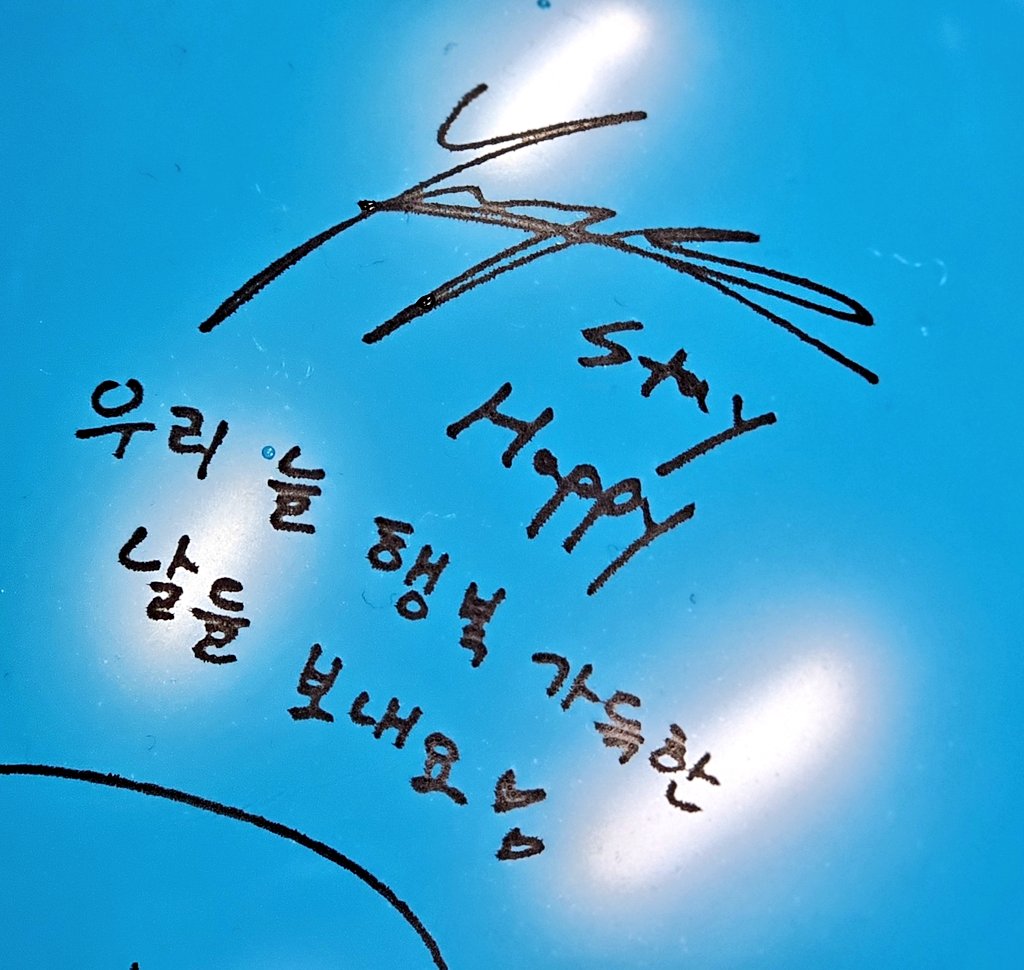 Stay
Happy
우리 늘 행복 가득한
날들 보내요